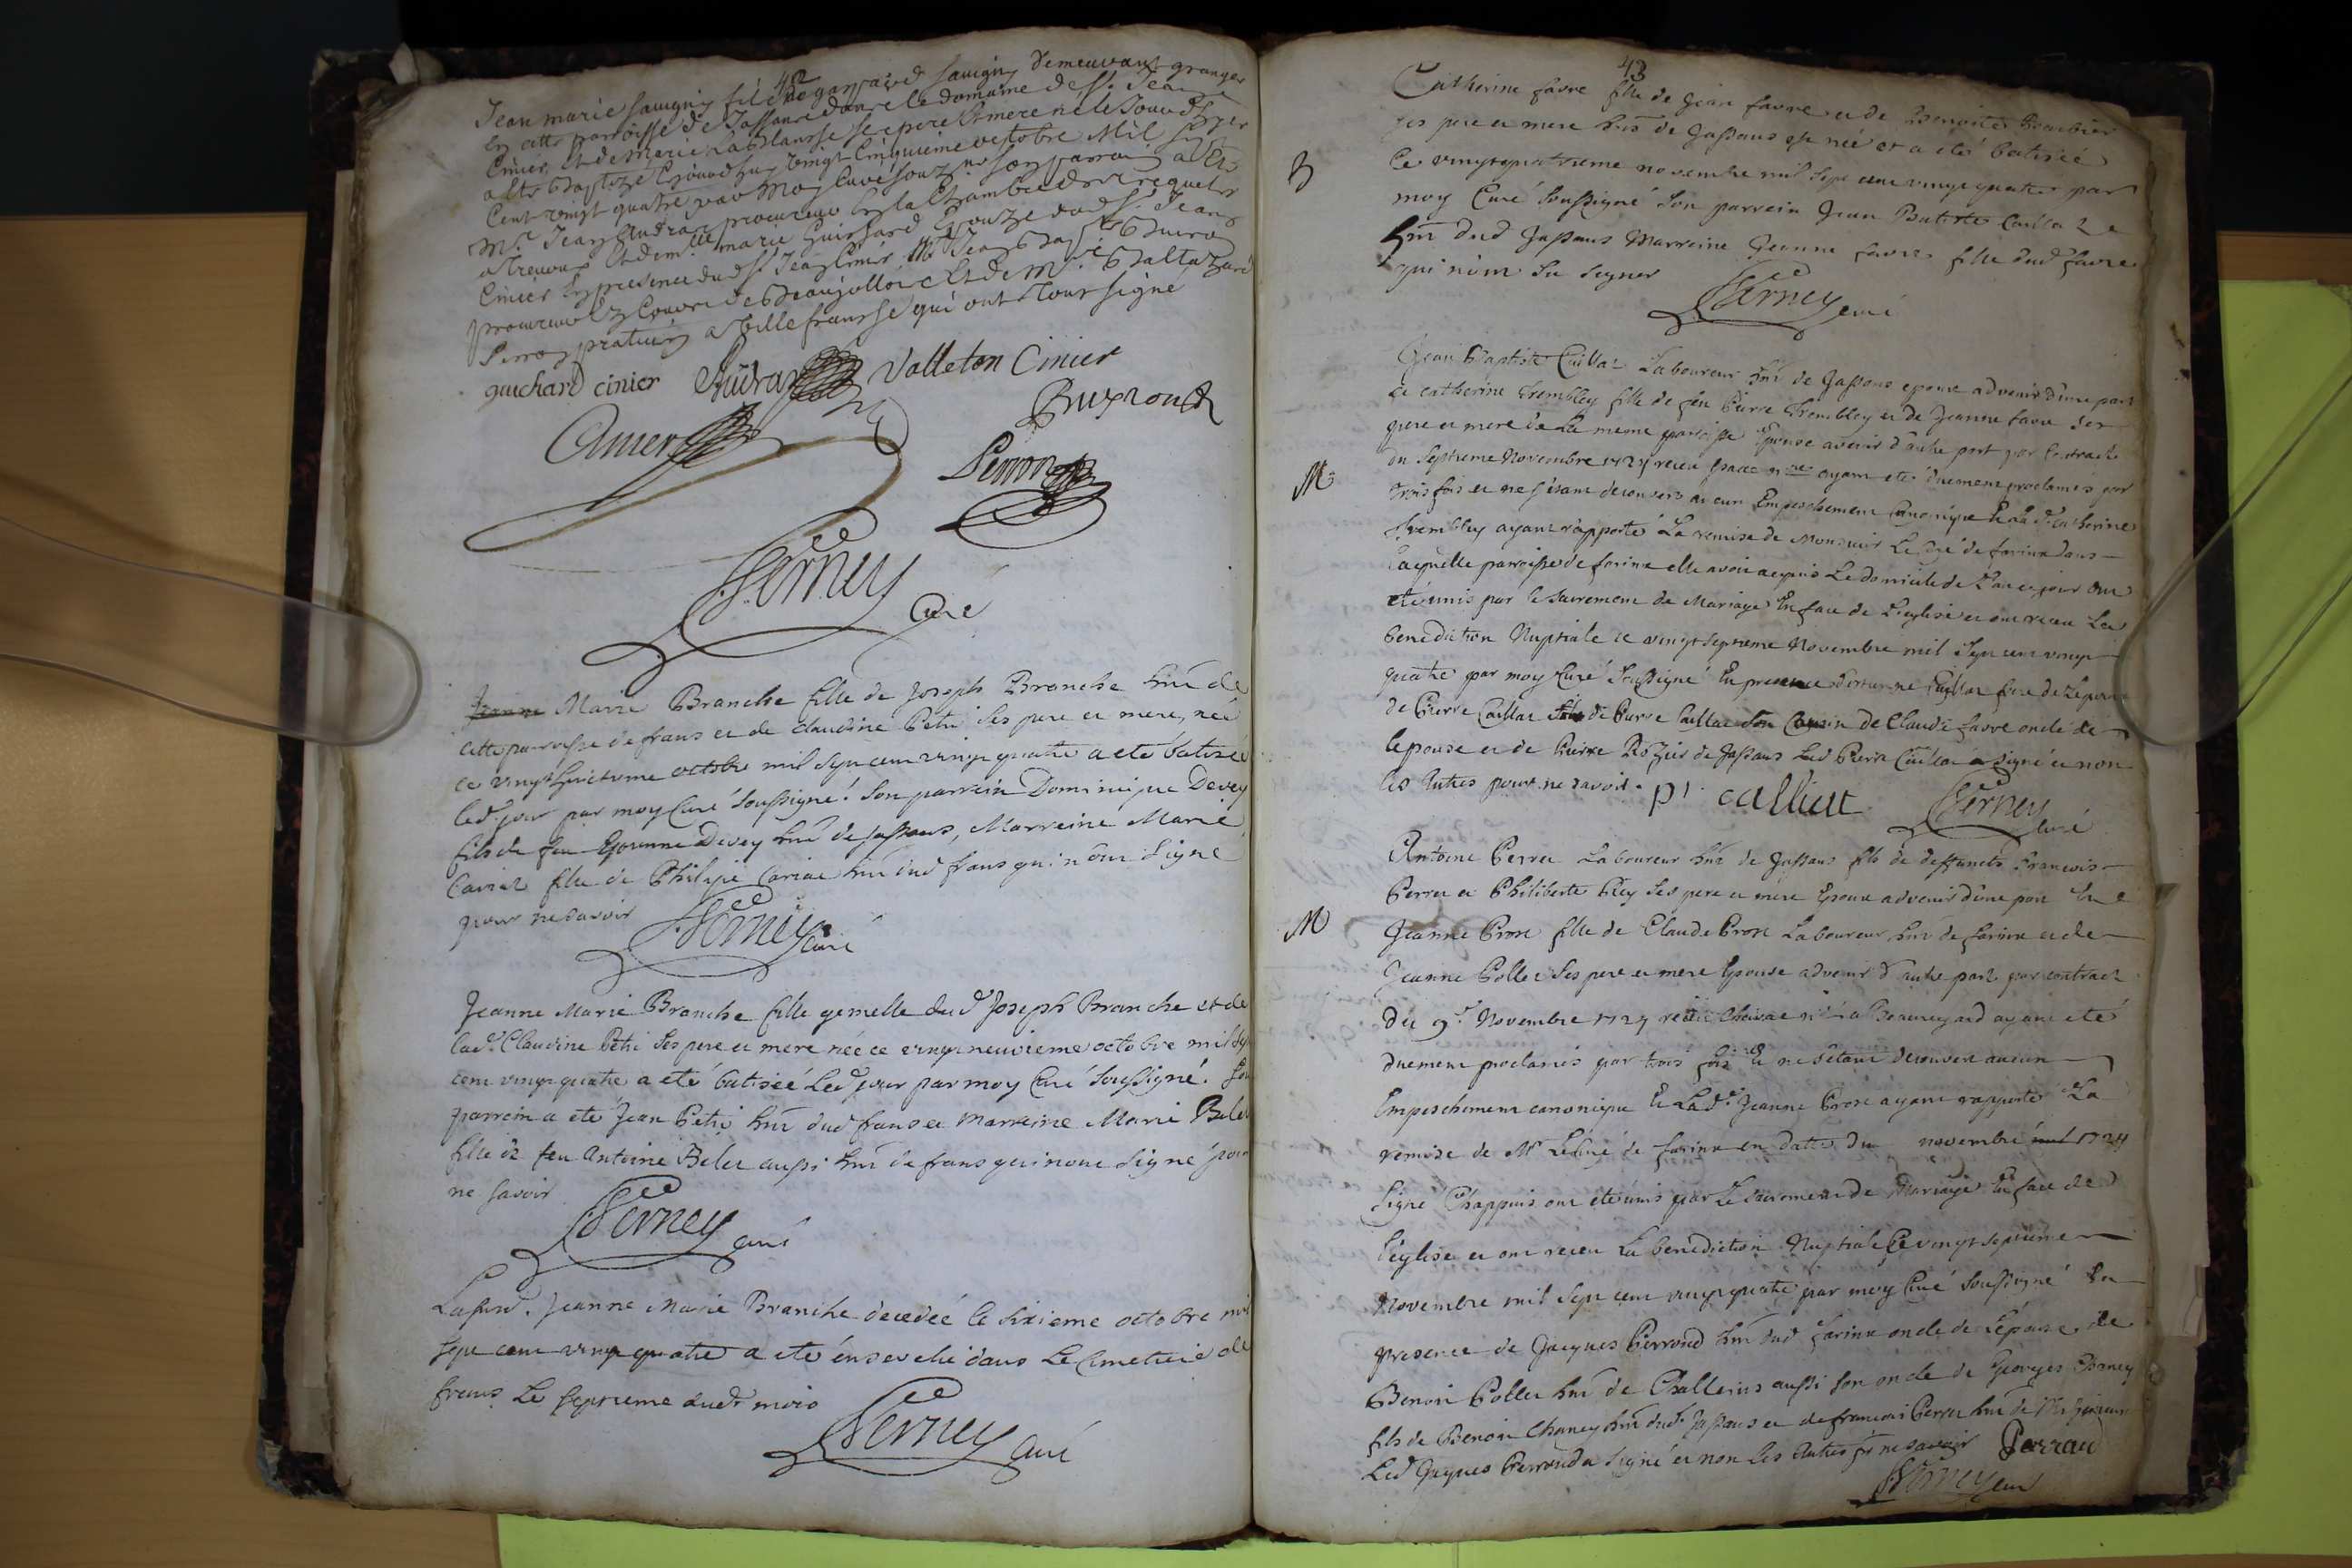 42
Jean marie Savigny fils de gaspard Savigny demeurant granger
En cette parroisse de Jassans dans le domaine de Sr. Jean
Cinier Et de Marie Lablansse ses pere Et mere né le Jourdhyer
a été Baptizé Cejourdhuy vingt Cinquieme octobre Mil sept
Cent vingt quatre par Moy Curé souzne son parrain a été
Mr. Jean Audras procureur En la Chambre des requetes
a trevoux Et demlle marie Guichard Epouze dud Sr. Jean
Cinier En presence dudSr. Jean Cinier Mr Jean Bapte Buiron
procureur Ez Cours de Beaujollois Et de Mr. Baltazard
Perron praticien a Villefransse qui ont Tous signé
guichard cinier Audras Valleton Cinier
Buyron
Cinier
Perron
Verney
Curé
Jeanne Marie Branche fille de Joseph Branche hnt de
cette parroisse de frans et de claudine Petit ses pere et mere, née
ce vingt huictieme octobre mil sept cent vingt quatre a eté batisée
led. jour par moy Curé soussigné. Son parrein Dominique Devey
fils de feu Devey hnt de Jassans, Marreine Marie
Cariat fille de Philipe Cariat hnt dud frans qui n'ont signé
pour ne savoir
Verney Curé
Jeanne Marie Branche fille gemelle dud Joseph Branche et de
lad. Claudine Petit ses pere et mere née ce vingt neuvieme octobre mil sept
cent vingt quatre a eté batiseé led jour par moy Curé soussigné. Son
parrein a eté Jean Petit hnt dud frans et Marreine Marie Belet
fille de feu Antoine Belet aussi hnt de frans qui n'ont signé pour
ne savoir
Verney curé
Lasusd. Jeanne Marie Branche decedée le sixieme octobre mil
sept cent vingt quatre a eté ensevelie dans le Cimetiere de
frans Le septieme dudt mois
Verney Curé
43
Catherine favre fille de Jean favre et de Benoite
ses pere et mere hnts de Jassans est née et a eté batisée
B
le vingtquatrieme novembre mil sept cent vingt quatre par
moy Curé soussigné son parrein Jean Batiste Caillat
hnt dud Jassans Marreine Jeanne favre fille dud favre
qui n'ont su signer
Verney curé
Jean Baptiste Caillat Laboureur hnt de Jassans epoux advenir d'une part
et catherine Trembley fille de feu Pierre Trembley et de Jeanne favre ses
pere et mere de La meme parroisse Epouse avenir d'autre part par Contract
du septieme Novembre 1724 receu nre ayant eté duement proclamés par
M
trois fois et ne s'etant decouvert aucun Empeschement Canonique Et Lad. catherine
Trembley ayant rapporté La remise de Monsieur Le Curé de farins dans
Laquelle parroisse de farins elle avoit acquis Le domicile de l'an et jour ont
eté unis par le sacrement de Mariage En face de L'eglise et ont receu La
benediction Nuptiale ce vingt septieme Novembre mil sept cent vingt
quatre par moy Curé soussigné En presence d'estienne Caillat frere de L'epoux
de Pierre Caillat fils de Pierre Caillat son Cousin de Claude favre oncle de
lepouse et de Pierre Rozier de Jassans Led Pierre Caillat a signé et non
les Autres pour ne savoir. p. calliat Verney Curé
Antoine Perret Laboureur hnt de Jassans fils de deffuncts Francois
Perret et Philiberte Rey ses pere et mere Epoux advenir d'une part Et
M
Jeanne Prost fille de Claude Prost Laboureur hnt de farins et de
Jeanne Pollet ses pere et mere Epouse advenir d'autre part par contract
du 9e. Novembre 1724 receu a Beauregard ayant eté
duement proclamés par trois fois et ne s'etant decouvert aucun
Empeschement canonique Et Lad. Jeanne Prost ayant rapporté La
remise de Mr Lecuré de farins en datte du novembre mil 1724
signé Chappuis ont eté unis par Le sacrement de Mariage En face de
l'eglise et ont receu La benediction Nuptiale Ce vingt septieme
Novembre mil sept cent vingt quatre par moy Curé soussigné En
presence de Jacques Perroud hnt dud farins oncle de L'epouse de
Benoit Pollet hnt de Challeins aussi son oncle de Georges Chaney
fils de Benoit Chaney hnt dud. Jassans et de francois Perret hnt de
Led Jacques Perroud a signé et non les Autres pr ne savoir Perraud
Verney curé